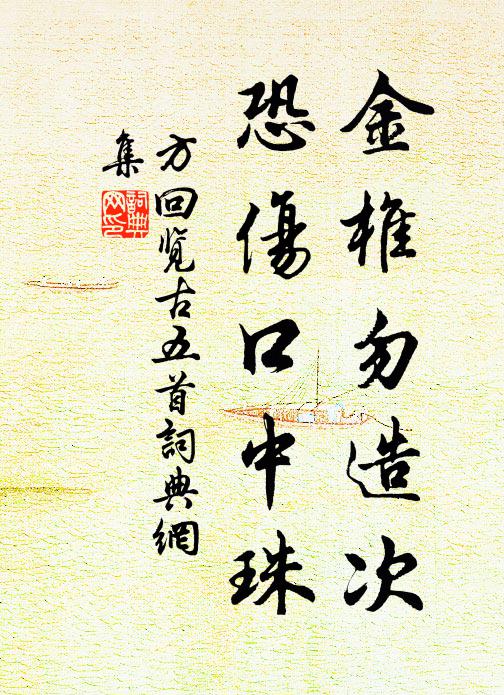 金椎勿造次
恐傷口中珠
方回览古五首詞典網
集
詞典
网印